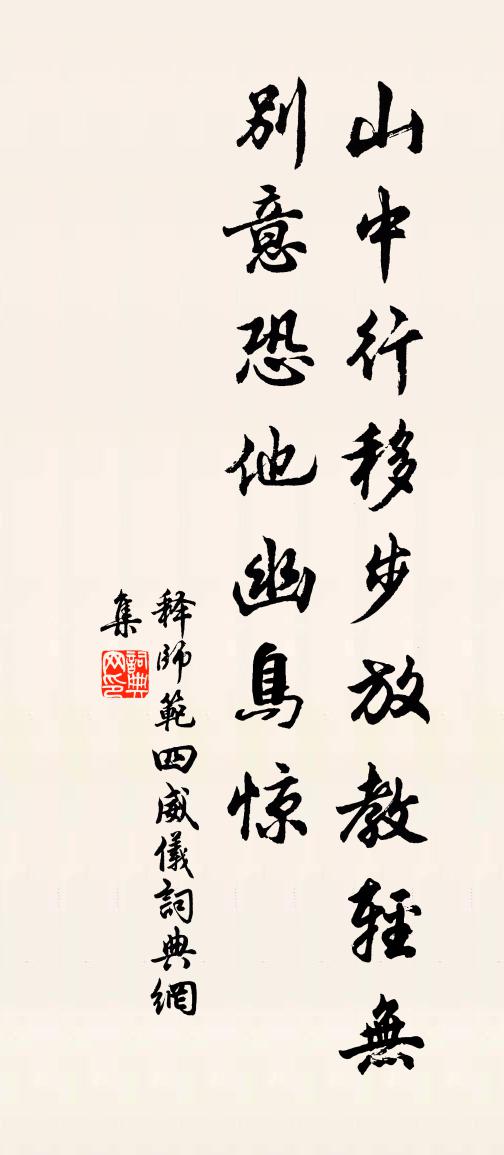 山中行移步放教輕無
別意恐他幽鳥惊
释師範四威儀詞典網
集
詞典
网印